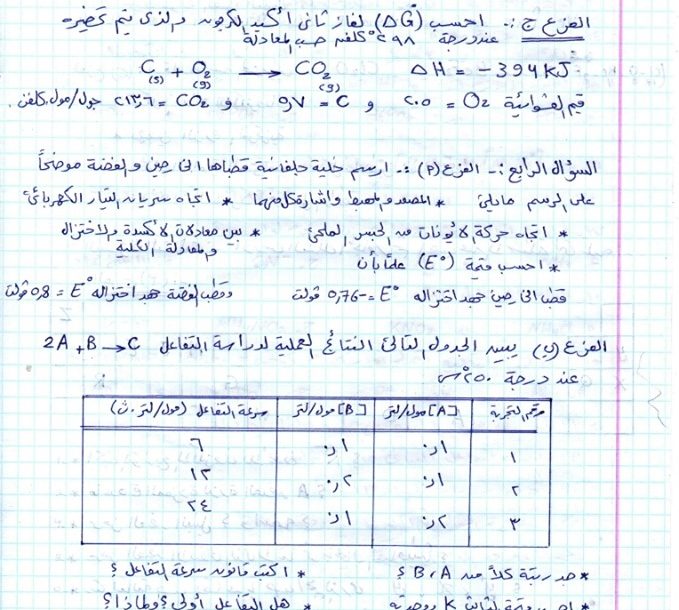 الفرع ج :- احسب (ΔG°) لغاز ثاني أكسيد الكربون والذي يتم تحضيره
عند درجة ٢٩٨ كلفن حسب المعادلة
C(s) + O2(g) → CO2(g) ΔH = -394 kJ
قيم العشوائية O2 = ٢٠٥ و C = ٥,٧ و CO2 = ٢١٣,٦ جول/مول.كلفن
السؤال الرابع :- الفرع (٢) :- ارسم خلية جلفانية قطباها الخارصين والفضة موضحاً
على الرسم مايلي * المصعد والمهبط واشارة كل منهما * اتجاه سريان التيار الكهربائي
* اتجاه حركة الأيونات من الجسر الملحي * بين معادلات الأكسدة والاختزال
والمعادلة الكلية
* احسب قيمة (E°) علماً بأن
قطب الخارصين جهد اختزاله E° = -0,76 فولت وقطب الفضة جهد اختزاله E° = 0,8 فولت
الفرع (ب) يبين الجدول التالي النتائج العملية لدراسة التفاعل 2A + B → C
عند درجة ٢٥٠ س
رقم التجربة [A] مول/لتر [B] مول/لتر سرعة التفاعل (مول/لتر.ث)
١ ٠,١ ٠,١ ٦
٢ ٠,١ ٠,٢ ١٢
٣ ٠,٢ ٠,١ ٢٤
* حدد رتبة كلاً من B، A ؟ * اكتب قانون سرعة التفاعل ؟
قيمة الثابت K ووحدته * هل التفاعل أولي؟ ولماذا؟